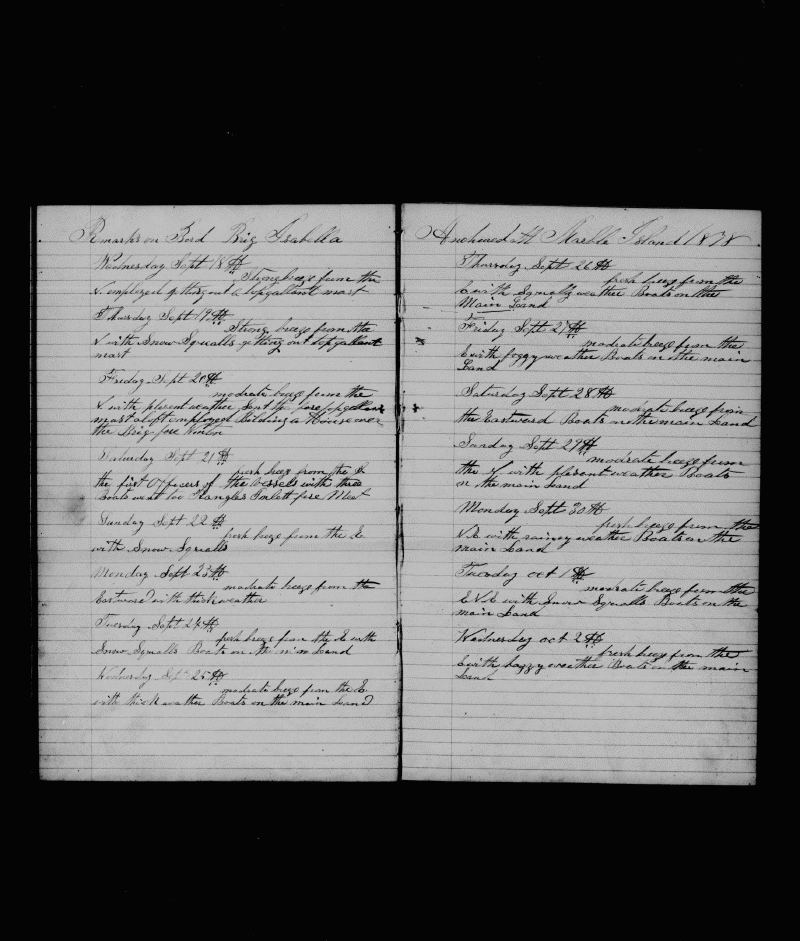 Remarks on Bord Brig Isabella
Wednesday Sept 18th
Strong breeze from the
N employed getting out a topgallant mast
Thursday Sept 19th
Strong breeze from the
N with Snow Squalls getting out topgallant
mast
Friday Sept 20th
modrate breeze from the
N with plesent weather Sent the fore topgallant
mast aloft employed building a House over
the Brig fore Winter
Saturday Sept 21th
fresh breeze from the E
the first Officers of the vessels with three
Boats went too Rangles Imlett fore Meat
Sunday Sept 22th
fresh breeze from the E
with Snow Squalls
Monday Sept 23th
modrate breeze from the
Eastward with thick weather
Tuesday Sept 24th
fresh breeze from the E with
Snow Squalls Boats on the main Land
Wednesday Sept 25th
modrate breeze from the E
with thick weather Boats on the main Land
Anchored at Marble Island 1878
Thursday Sept 26th
fresh breeze from the
E with Squally weather Boats on the
Main Land
Friday Sept 27th
modrate breeze from the
E with foggy weather Boats on the main
Land
Saturday Sept 28th
modrate breeze from
the Eastward Boats on the main Land
Sunday Sept 29th
modrate breeze from
the N with plesent weather Boats
on the main Land
Monday Sept 30th
fresh breeze from the
N.E with rainey weather Boats on the
main Land
Tuesday oct 1th
modrate breeze from the
E N E with Snow Squalls Boats on the
main Land
Wednesday oct 2th
fresh breeze from the
E with foggy weather Boats on the main
Land